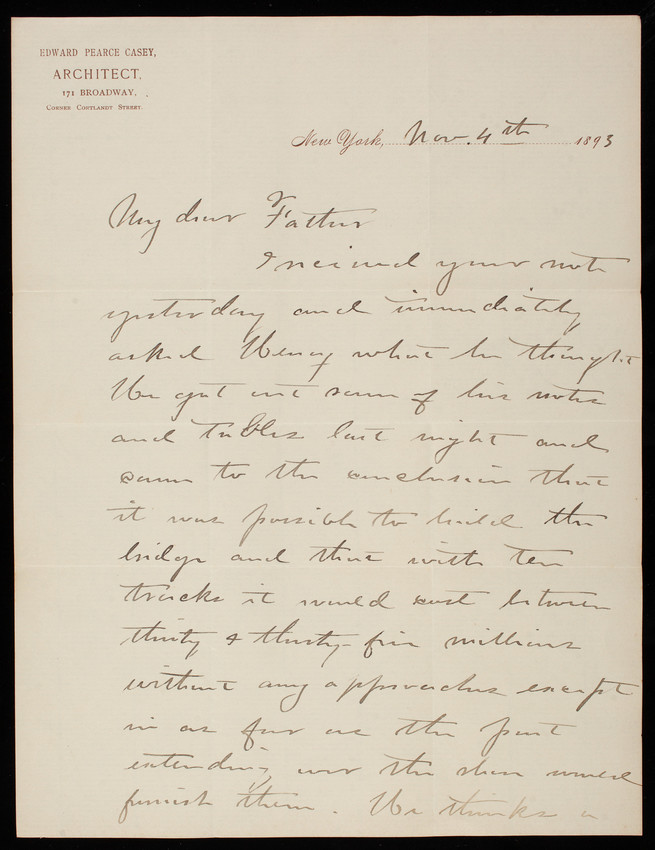 EDWARD PEARCE CASEY,
ARCHITECT,
171 BROADWAY,
CORNER CORTLANDT STREET.
New York, Nov. 4th 1893
My dear Father
I received your note
yesterday and immediately
asked Henry what he thought
He got out some of his notes
and tables last night and
came to the conclusion that
it was possible to build the
bridge and that with ten
tracks it would cost between
thirty & thirty-five millions
without any approaches except
in as far as the part
extending over the shore would
furnish them. He thinks a